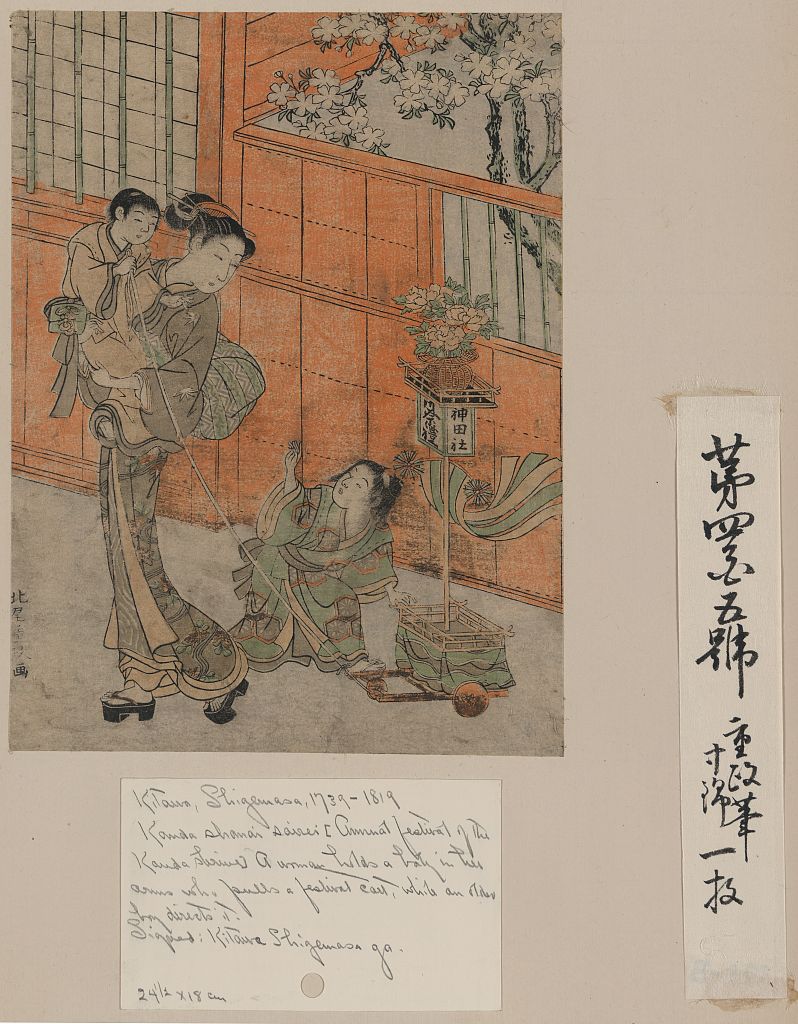 神田社
北尾重政画
Kitawo, Shigemasa, 1739-1819
Kanda shonai sairei [Annual festival of the
Kanda Shrine] A woman holds a baby in her
arms who pulls a festival cart, while an older
boy directs it.
Signed: Kitawo Shigemasa ga.
24 1/2 x 18 cm
第四百五號
重政筆
一枚